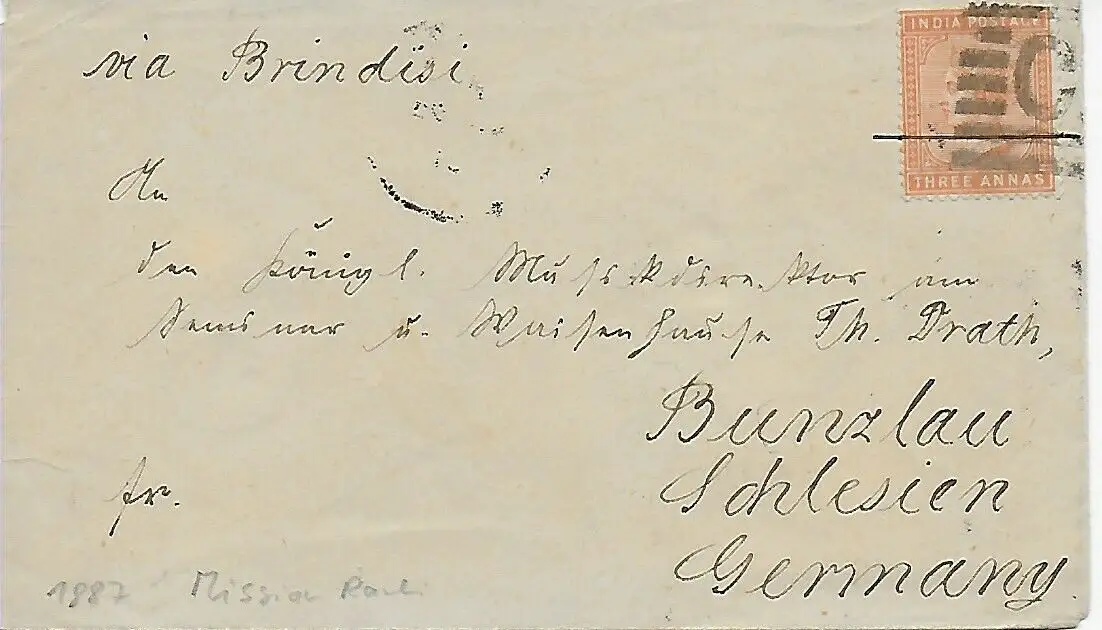 via Brindisi
INDIA POSTAGE
THREE ANNAS
An
den Königl. Musikdirektor am
Seminar u. Waisenhause Th. Drath,
Bunzlau
Schlesien
Germany.
fr.
1887 Mission